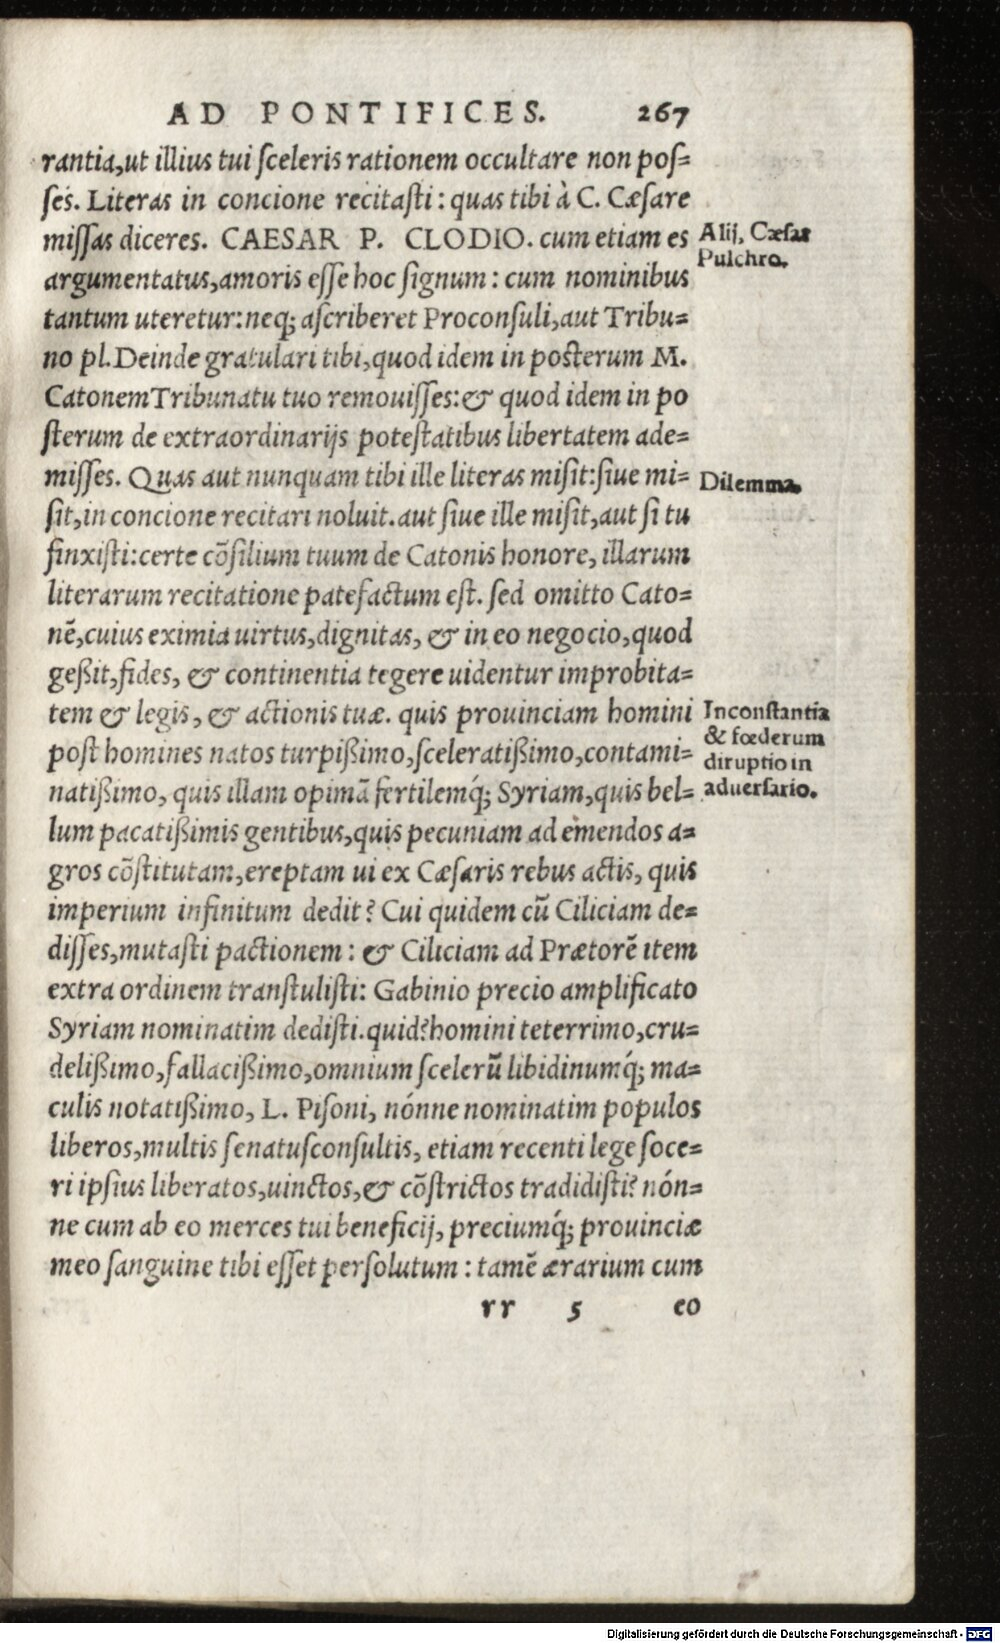 AD PONTIFICES. 267
rantia,ut illius tui sceleris rationem occultare non pos=
ses. Literas in concione recitasti: quas tibi à C. Cæsare
missas diceres. CAESAR P. CLODIO. cum etiam es
Alij, Cæsar
Pulchro.
argumentatus,amoris esse hoc signum: cum nominibus
tantum uteretur:neq; ascriberet Proconsuli,aut Tribu=
no pl.Deinde gratulari tibi,quod idem in posterum M.
CatonemTribunatu tuo remouisses:& quod idem in po
sterum de extraordinarijs potestatibus libertatem ade=
misses. Quas aut nunquam tibi ille literas misit:siue mi=
Dilemma.
sit,in concione recitari noluit.aut siue ille misit,aut si tu
finxisti:certe cōsilium tuum de Catonis honore, illarum
literarum recitatione patefactum est. sed omitto Cato=
nē,cuius eximia uirtus,dignitas, & in eo negocio,quod
geßit,fides, & continentia tegere uidentur improbita=
tem & legis, & actionis tuæ. quis prouinciam homini
Inconstantia
& fœderum
diruptio in
aduersario.
post homines natos turpißimo,sceleratißimo,contami=
natißimo, quis illam opimā fertilemq́; Syriam,quis bel=
lum pacatißimis gentibus,quis pecuniam ad emendos a=
gros cōstitutam,ereptam ui ex Cæsaris rebus actis, quis
imperium infinitum dedit? Cui quidem cū Ciliciam de=
disses,mutasti pactionem: & Ciliciam ad Prætorē item
extra ordinem transtulisti: Gabinio precio amplificato
Syriam nominatim dedisti.quid?homini teterrimo,cru=
delißimo,fallacißimo,omnium scelerū libidinumq́; ma=
culis notatißimo, L. Pisoni, nónne nominatim populos
liberos,multis senatusconsultis, etiam recenti lege soce=
ri ipsius liberatos,uinctos,& cōstrictos tradidisti? nón=
ne cum ab eo merces tui beneficij, preciumq́; prouinciæ
meo sanguine tibi esset persolutum: tamē ærarium cum
rr 5 eo
Digitalisierung gefördert durch die Deutsche Forschungsgemeinschaft - DFG